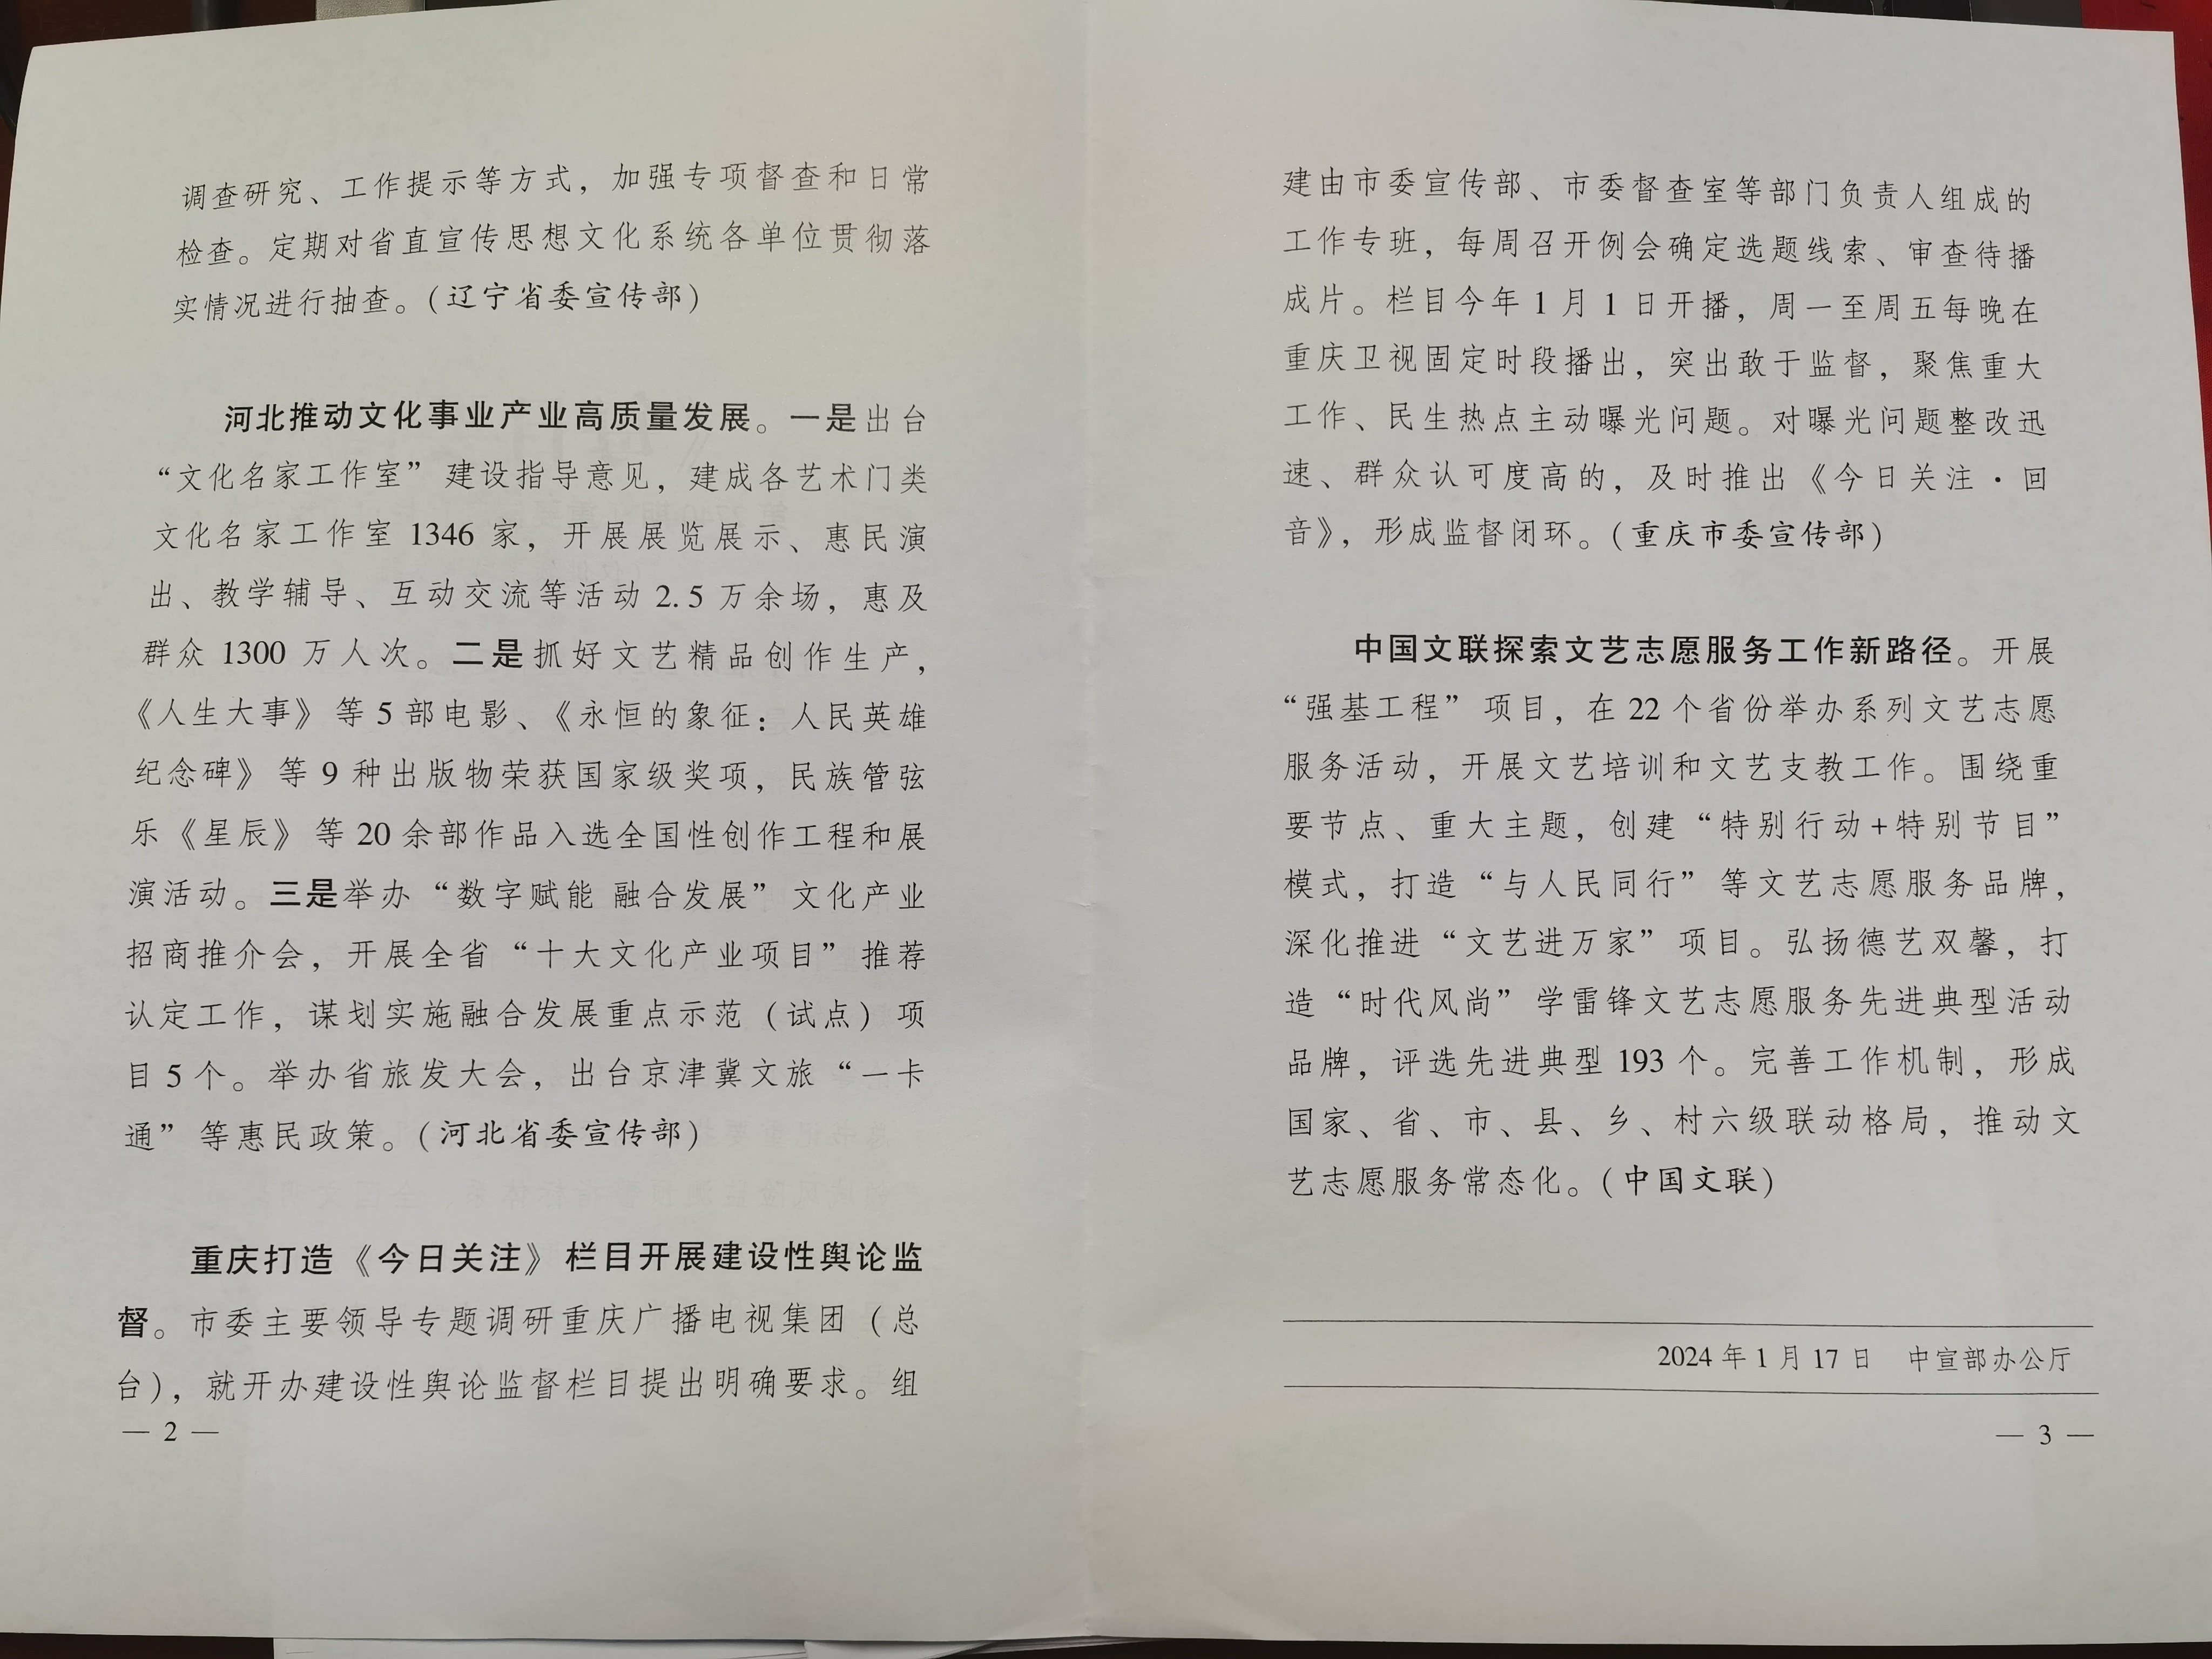 调查研究、工作提示等方式，加强专项督查和日常
检查。定期对省直宣传思想文化系统各单位贯彻落
实情况进行抽查。(辽宁省委宣传部)
河北推动文化事业产业高质量发展。一是出台
“文化名家工作室”建设指导意见，建成各艺术门类
文化名家工作室 1346 家，开展展览展示、惠民演
出、教学辅导、互动交流等活动 2.5 万余场，惠及
群众 1300 万人次。二是抓好文艺精品创作生产，
《人生大事》等 5 部电影、《永恒的象征：人民英雄
纪念碑》等 9 种出版物荣获国家级奖项，民族管弦
乐《星辰》等 20 余部作品入选全国性创作工程和展
演活动。三是举办“数字赋能 融合发展”文化产业
招商推介会，开展全省“十大文化产业项目”推荐
认定工作，谋划实施融合发展重点示范（试点）项
目 5 个。举办省旅发大会，出台京津冀文旅“一卡
通”等惠民政策。(河北省委宣传部)
重庆打造《今日关注》栏目开展建设性舆论监
督。市委主要领导专题调研重庆广播电视集团（总
台），就开办建设性舆论监督栏目提出明确要求。组
— 2 —
建由市委宣传部、市委督查室等部门负责人组成的
工作专班，每周召开例会确定选题线索、审查待播
成片。栏目今年 1 月 1 日开播，周一至周五每晚在
重庆卫视固定时段播出，突出敢于监督，聚焦重大
工作、民生热点主动曝光问题。对曝光问题整改迅
速、群众认可度高的，及时推出《今日关注·回
音》，形成监督闭环。(重庆市委宣传部)
中国文联探索文艺志愿服务工作新路径。开展
“强基工程”项目，在 22 个省份举办系列文艺志愿
服务活动，开展文艺培训和文艺支教工作。围绕重
要节点、重大主题，创建“特别行动+特别节目”
模式，打造“与人民同行”等文艺志愿服务品牌，
深化推进“文艺进万家”项目。弘扬德艺双馨，打
造“时代风尚”学雷锋文艺志愿服务先进典型活动
品牌，评选先进典型 193 个。完善工作机制，形成
国家、省、市、县、乡、村六级联动格局，推动文
艺志愿服务常态化。(中国文联)
2024 年 1 月 17 日 中宣部办公厅
— 3 —